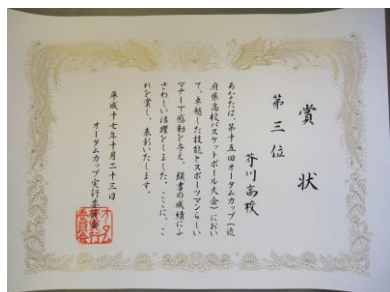 賞状
第三位
芥川高校
あなたは、第十五回オータムカップ(近
府県高校バスケットボール大会)におい
て、卓越した技能とスポーツマンらしい
マナーで感動を与え、頭書の成績にふ
さわしい活躍をしました。ここに、こ
れを賞し、表彰いたします。
平成十七年十月二十三日
オータムカップ実行委員会